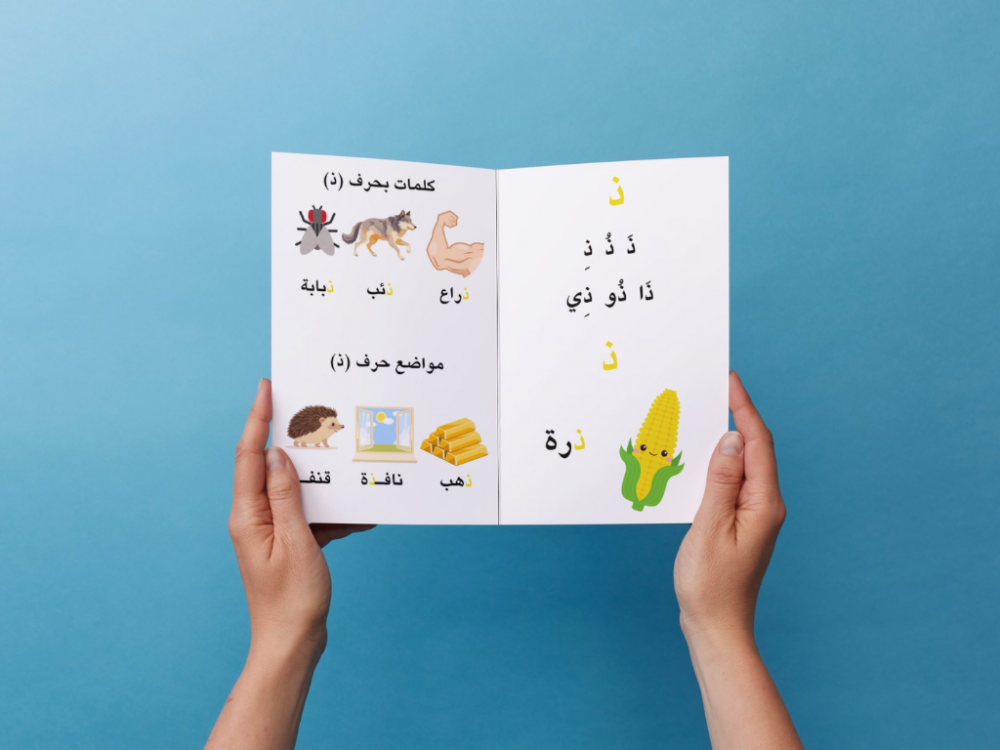 ذ
ذَ ذُ ذِ
ذَا ذُو ذِي
ذ
ذرة
كلمات بحرف (ذ)
ذراع ذئب ذبابة
مواضع حرف (ذ)
ذهب نافـذة قنفـ